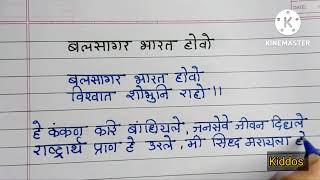 KINEMASTER
बलसागर भारत होवो
बलसागर भारत होवो
विश्वात शोभुनि राहो !!
हे कंकण करि बांधियले, जनसेवे जीवन दिधले
राष्ट्रार्थ प्राण हे उरले, मी सिध्द मरायला हो
Kiddos